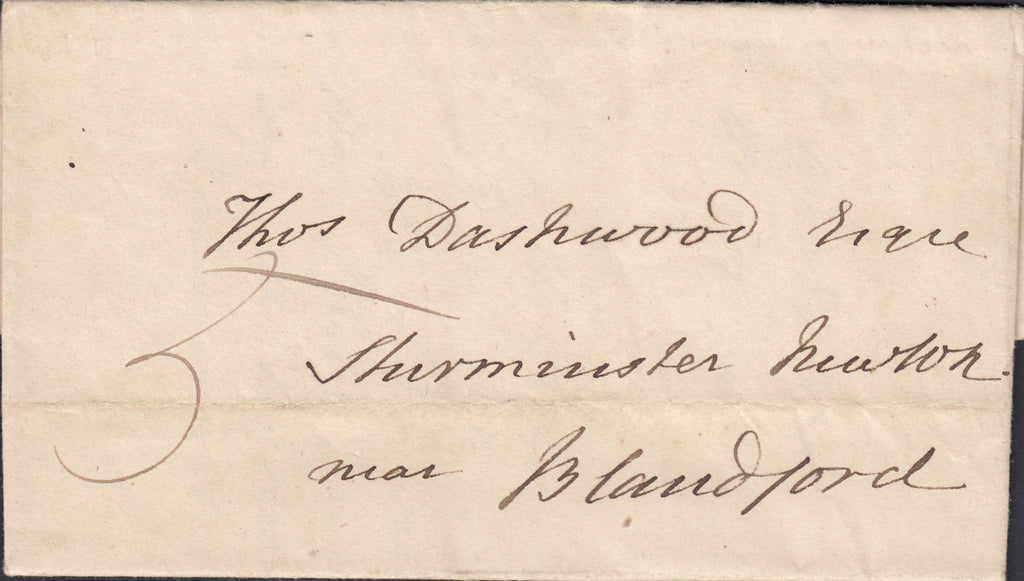 Thos Dashwood Esqre
Sturminster Newton.
near Blandford
5